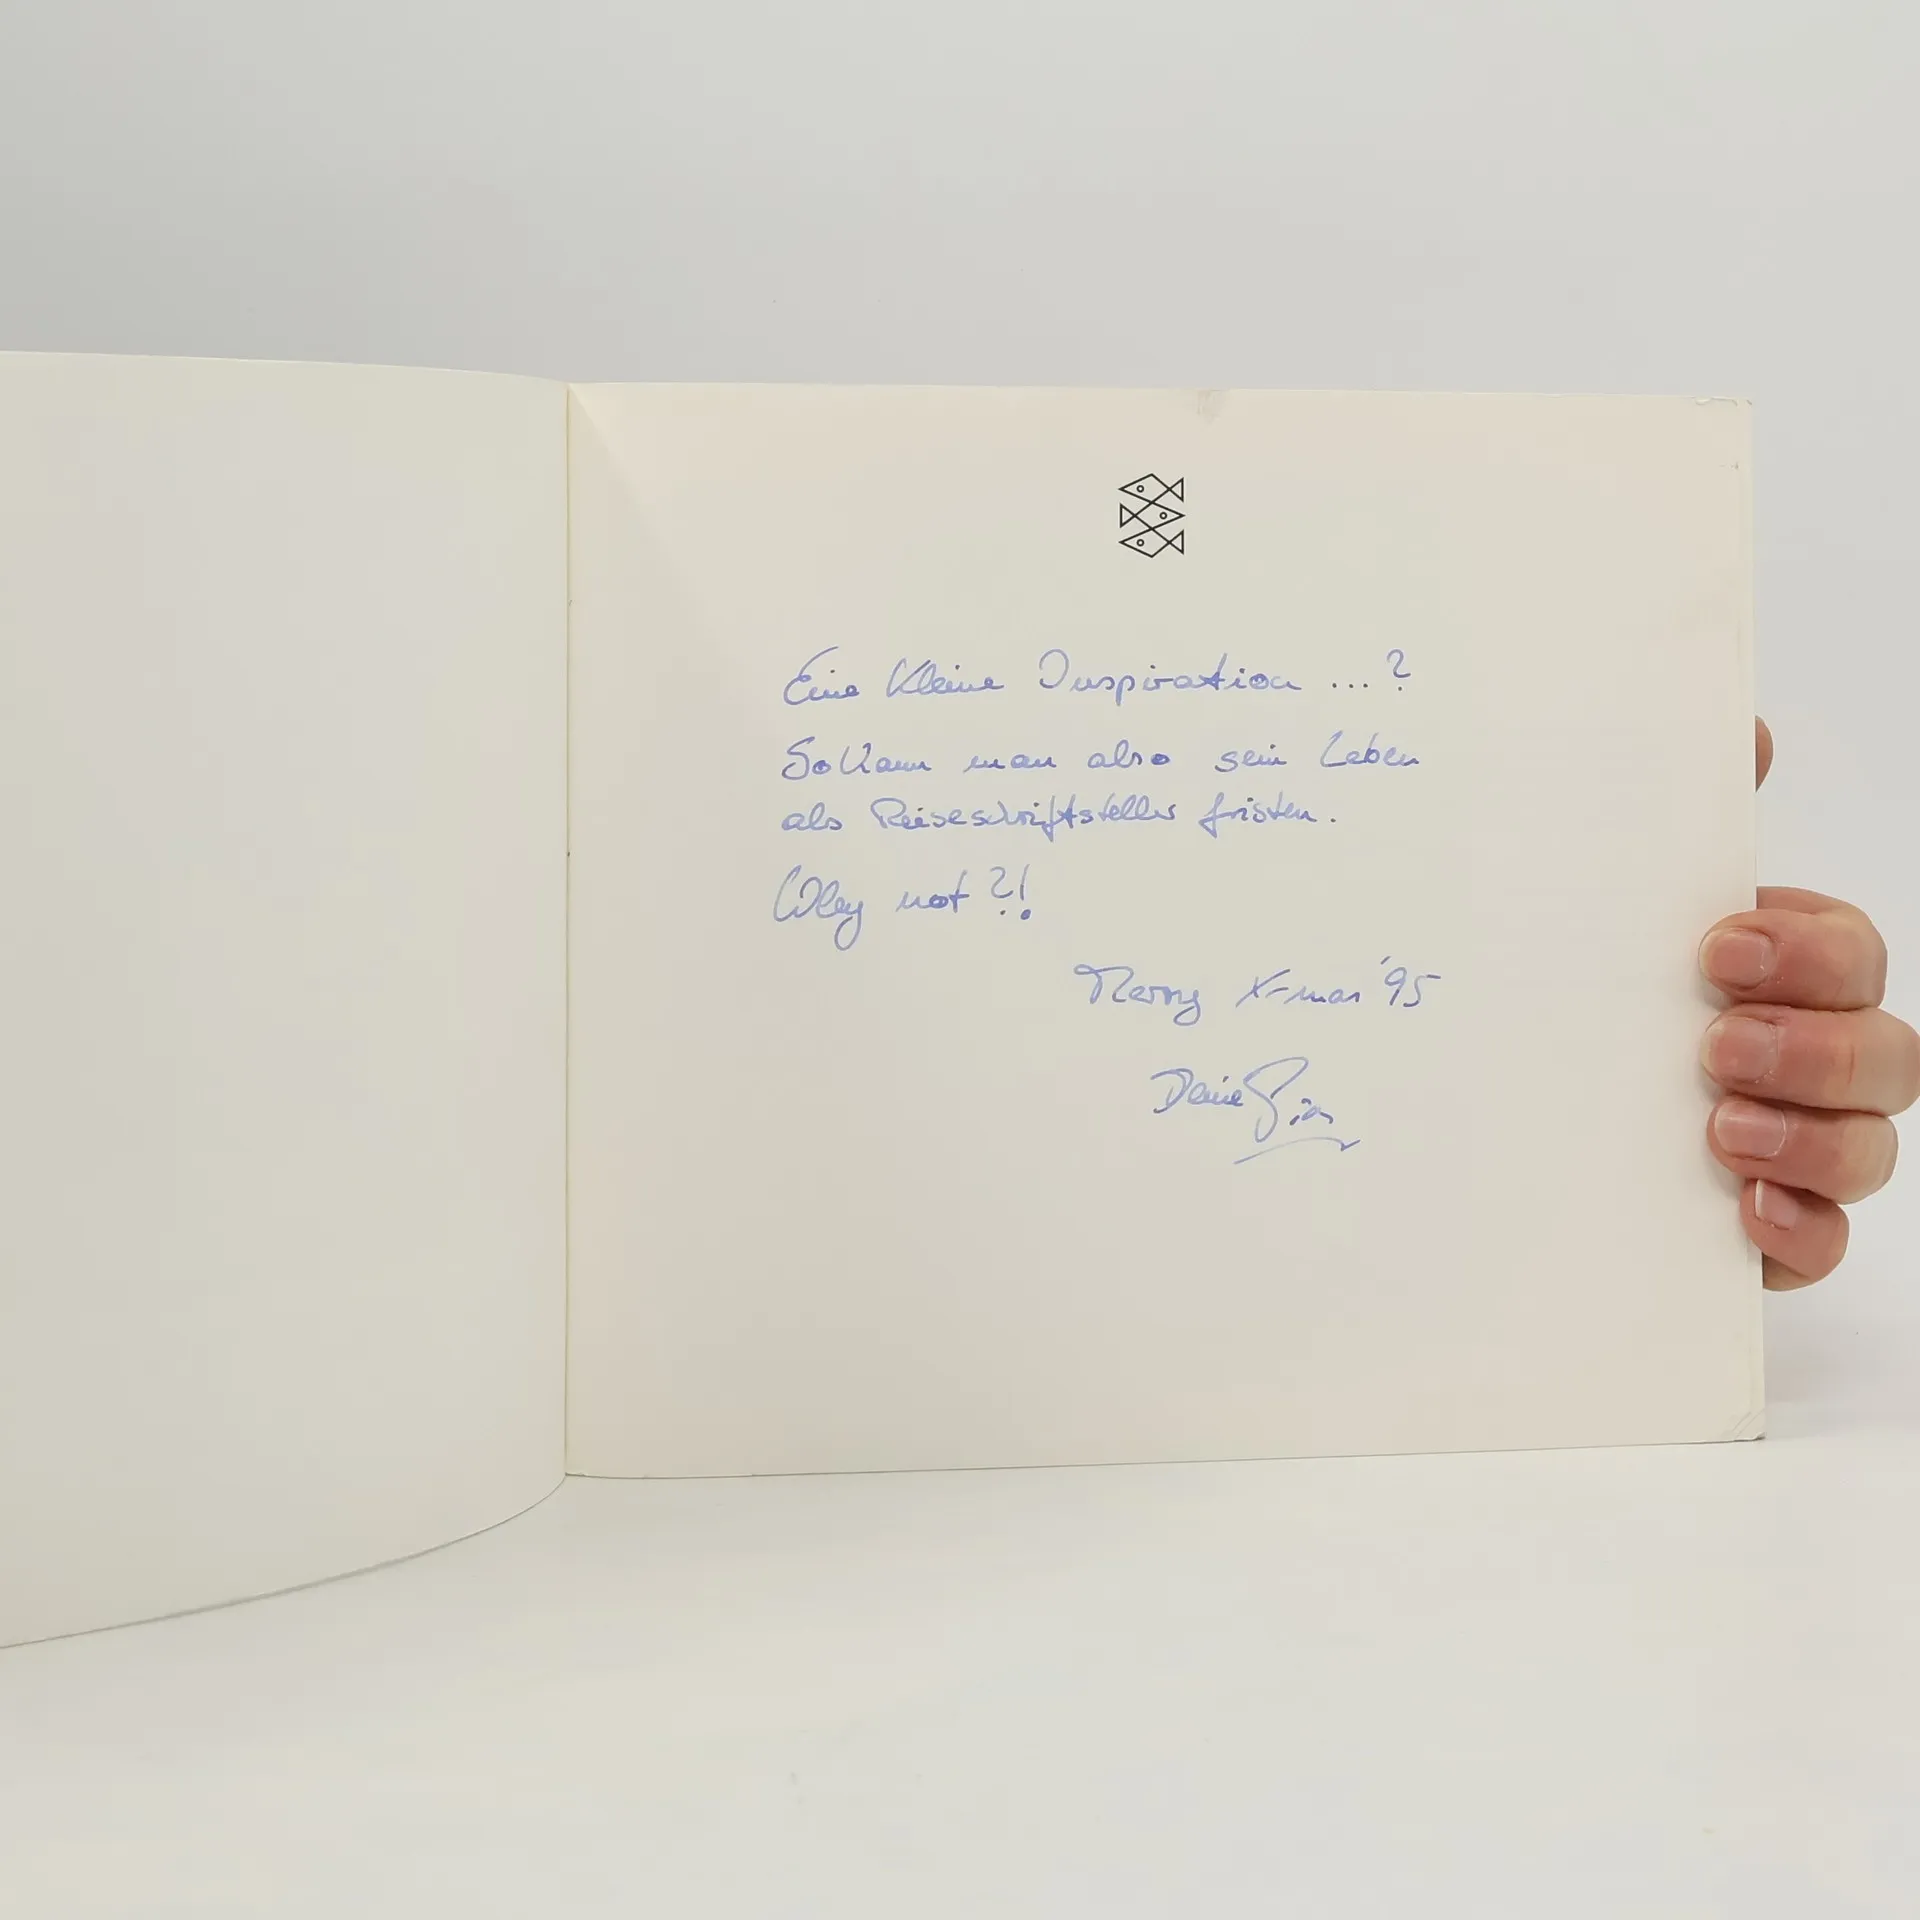 Eine kleine Inspiration ... ?
So kann man also sein Leben
als Reiseschriftsteller fristen.
Why not ?!
Merry X-mas '95
Deine